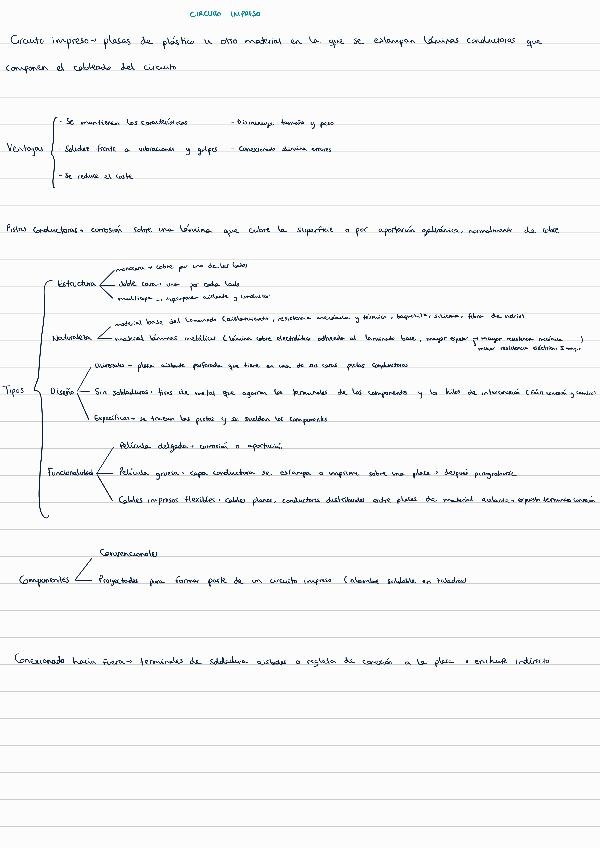 CIRCUITO IMPRESO
Circuito impreso → placas de plástico u otro material en la que se estampan láminas conductoras que
componen el cableado del circuito
Ventajas
- Se mantienen las características - Disminuye tamaño y peso
- Solidez frente a vibraciones y golpes - Conexionado elimina errores
- Se reduce el coste
Pistas conductoras → corrosión sobre una lámina que cubre la superficie o por aportación galvánica, normalmente de cobre
Tipos
Estructura
monocara → cobre por uno de los lados
doble cara → uno por cada lado
multicapa → superpone aislante y conductor
Naturaleza
material base del laminado (aislamiento, resistencia mecánica y térmica, baquelita, silicona, fibra de vidrio
material láminas metálicas (lámina cobre electrolítico adherida al laminado base, mayor espesor → mayor resistencia mecánica )
menor resistencia eléctrica I mayor
Diseño
Universales → placa aislante perforada que tiene en una de sus caras pistas conductoras
Sin soldaduras → tiras de metal que agarran los terminales de los componentes y los hilos de interconexión
Específicas → se trazan las pistas y se sueldan los componentes
Funcionalidad
Película delgada → corrosión o aportación
Película gruesa → capa conductora se estampa o imprime sobre una placa → después
Cables impresos flexibles → cables planos, conductores distribuidos entre placas de material aislante →
Componentes
Convencionales
Proyectados para formar parte de un circuito impreso (alambre soldable en taladros)
Conexionado hacia fuera → terminales de soldadura aislados o regleta de conexión a la placa o enchufe indirecto